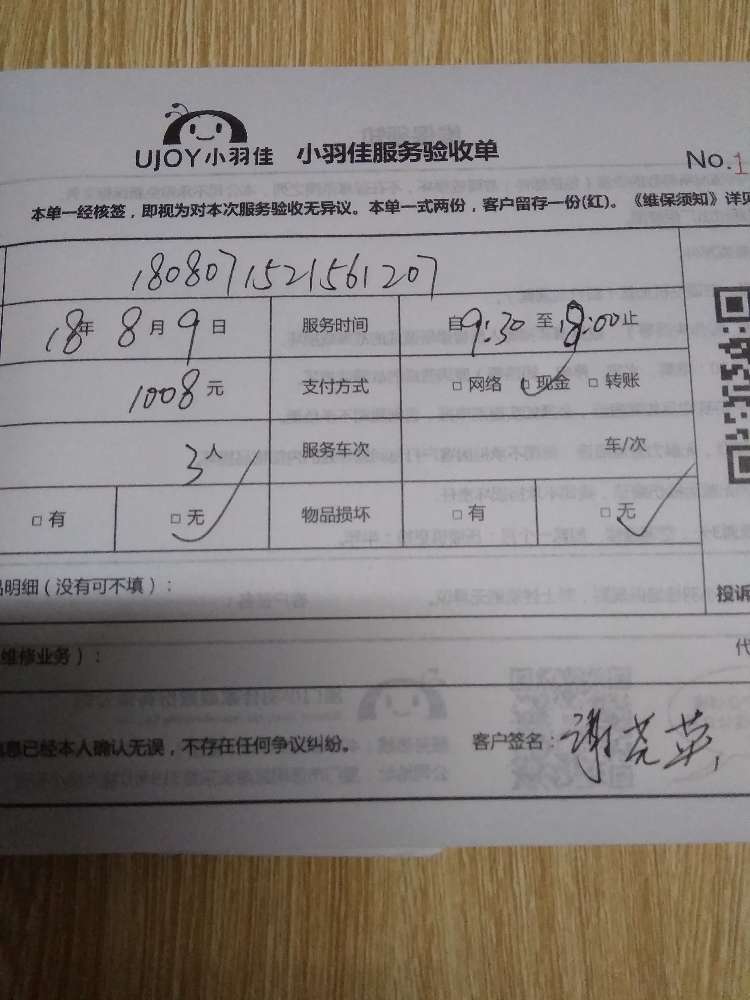 UJOY小羽佳 小羽佳服务验收单
No.1
本单一经核签，即视为对本次服务验收无异议。本单一式两份，客户留存一份(红)。《维保须知》详见
1808071521561207
18年 8月 9日 服务时间 自9:30至18:00止
1008元 支付方式 □网络 □现金 □转账
3人 服务车次 车/次
□有 □无 物品损坏 □有 □无
品明细（没有可不填）：
投诉
维修业务）：
代
信息已经本人确认无误，不存在任何争议纠纷。 客户签名：谢